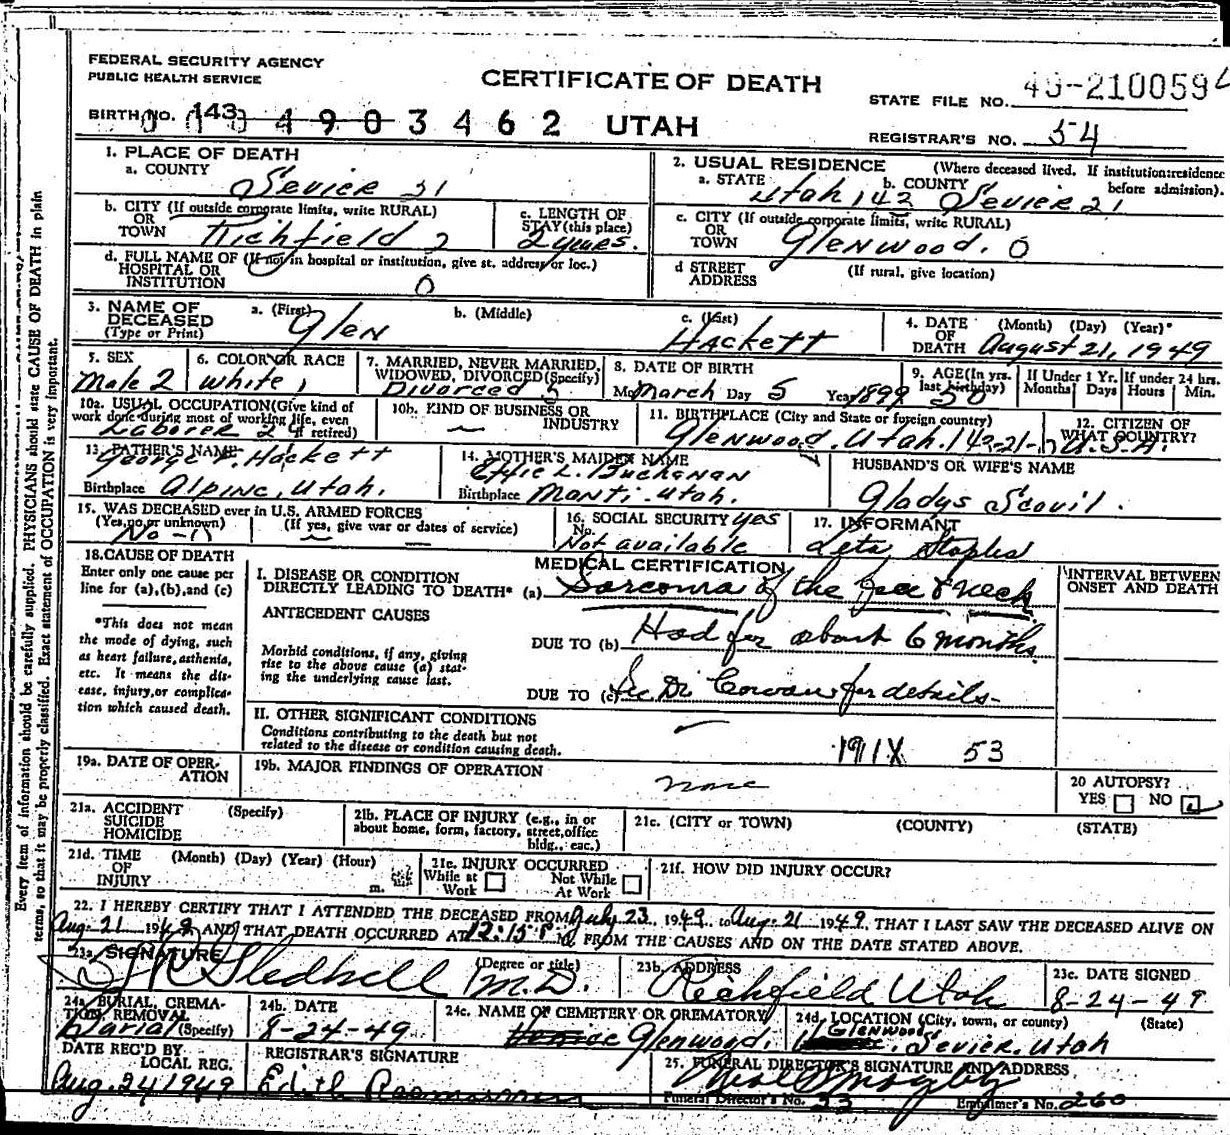 FEDERAL SECURITY AGENCY
PUBLIC HEALTH SERVICE
CERTIFICATE OF DEATH
STATE FILE NO. 49-210059
BIRTH NO. 143 4903462 UTAH
REGISTRAR'S NO. 54
1. PLACE OF DEATH
a. COUNTY
Sevier 21
2. USUAL RESIDENCE (Where deceased lived. If institution:residence before admission).
a. STATE Utah 142 b. COUNTY Sevier 21
b. CITY (If outside corporate limits, write RURAL)
OR
TOWN Richfield 2
c. LENGTH OF
STAY (this place)
2 years.
c. CITY (If outside corporate limits, write RURAL)
OR
TOWN Glenwood. 0
d. FULL NAME OF (If not in hospital or institution, give st. address or loc.)
HOSPITAL OR
INSTITUTION 0
d STREET
ADDRESS
(If rural, give location)
3. NAME OF
DECEASED
(Type or Print)
a. (First)
Glen
b. (Middle)
c. (Last)
Hackett
4. DATE
OF
DEATH
(Month) (Day) (Year)
August 21, 1949
5. SEX
Male 2
6. COLOR OR RACE
white 1
7. MARRIED, NEVER MARRIED,
WIDOWED, DIVORCED (Specify)
Divorced 5
8. DATE OF BIRTH
Mo March Day 5 Year 1899
9. AGE (In yrs.
last birthday)
50
If Under 1 Yr.
Months Days
If under 24 hrs.
Hours Min.
10a. USUAL OCCUPATION (Give kind of
work done during most of working life, even
if retired)
Laborer
10b. KIND OF BUSINESS OR
INDUSTRY
11. BIRTHPLACE (City and State or foreign country)
Glenwood, Utah. 142-21-
12. CITIZEN OF
WHAT COUNTRY?
U.S.A.
13. FATHER'S NAME
George F. Hackett
Birthplace Alpine, Utah.
14. MOTHER'S MAIDEN NAME
Effie L. Buchanan
Birthplace Manti. Utah.
HUSBAND'S OR WIFE'S NAME
Gladys Scovil.
15. WAS DECEASED ever in U.S. ARMED FORCES
(Yes, no, or unknown)
(If yes, give war or dates of service)
No - 0
16. SOCIAL SECURITY yes
No.
Not available
17. INFORMANT
Leta Staples
18. CAUSE OF DEATH
Enter only one cause per
line for (a), (b), and (c)
*This does not mean
the mode of dying, such
as heart failure, asthenia,
etc. It means the dis-
ease, injury, or complica-
tion which caused death.
MEDICAL CERTIFICATION
I. DISEASE OR CONDITION
DIRECTLY LEADING TO DEATH* (a) Sarcoma of the Face & Neck
INTERVAL BETWEEN
ONSET AND DEATH
ANTECEDENT CAUSES
DUE TO (b) Had for about 6 months
Morbid conditions, if any, giving
rise to the above cause (a) stat-
ing the underlying cause last.
DUE TO (c) See Dr Cowan for details-
II. OTHER SIGNIFICANT CONDITIONS
Conditions contributing to the death but not
related to the disease or condition causing death.
191X 53
19a. DATE OF OPER-
ATION
19b. MAJOR FINDINGS OF OPERATION
none
20 AUTOPSY?
YES NO
21a. ACCIDENT
SUICIDE
HOMICIDE
(Specify)
21b. PLACE OF INJURY (e.g., in or
about home, form, factory, street, office
bldg., eac.)
21c. (CITY or TOWN) (COUNTY) (STATE)
21d. TIME
OF
INJURY
(Month) (Day) (Year) (Hour)
m.
21e. INJURY OCCURRED
While at
Work
Not While
At Work
21f. HOW DID INJURY OCCUR?
22. I HEREBY CERTIFY THAT I ATTENDED THE DECEASED FROM July 23 1949 to Aug. 21 1949, THAT I LAST SAW THE DECEASED ALIVE ON
Aug. 21 1949 AND THAT DEATH OCCURRED AT 12:15 P. M, FROM THE CAUSES AND ON THE DATE STATED ABOVE.
23a. SIGNATURE
(Degree or title)
Gledhill M.D.
23b. ADDRESS
Richfield Utah
23c. DATE SIGNED
8-24-49
24a. BURIAL, CREMA-
TION, REMOVAL
(Specify)
Burial
24b. DATE
8-24-49
24c. NAME OF CEMETERY OR CREMATORY
Glenwood.
24d. LOCATION (City, town, or county) (State)
Glenwood
Sevier. Utah
DATE REC'D BY
LOCAL REG.
Aug. 24 1949
REGISTRAR'S SIGNATURE
Edith
25. FUNERAL DIRECTOR'S SIGNATURE AND ADDRESS
Funeral Director's No. 33 Embalmer's No. 260
Every item of information should be carefully supplied. PHYSICIANS should state CAUSE OF DEATH in plain
terms, so that it may be properly classified. Exact statement of OCCUPATION is very important.